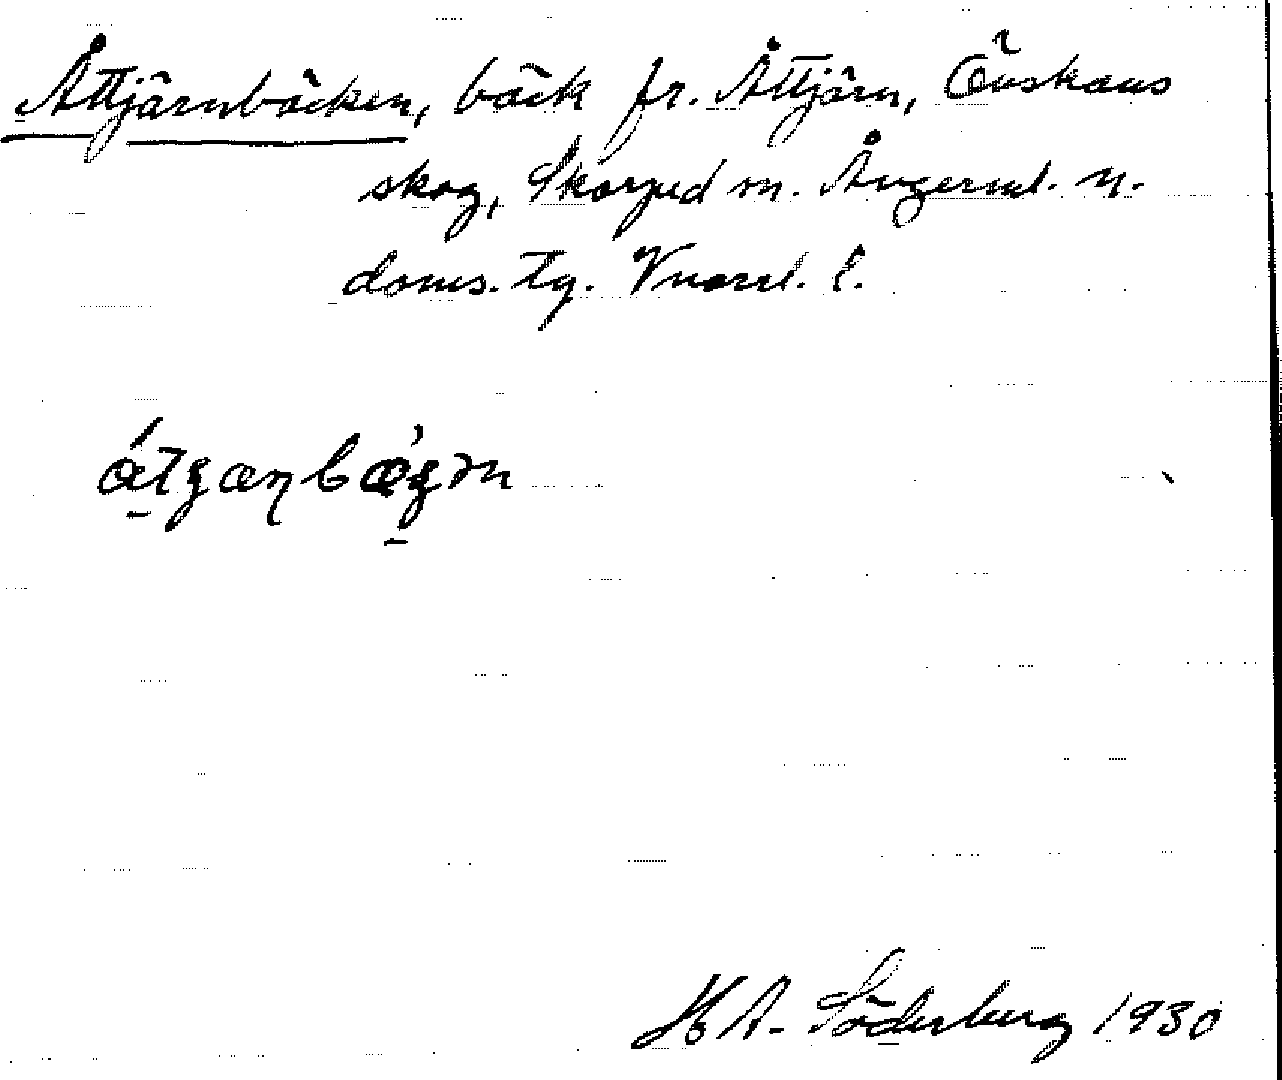 Åttjärnbäcken, bäck fr. Åttjärn, Önskans
skog, Skorped sn. Ångerml. n.
doms. tg. Vnorrl. l.
H A. Söderberg 1930